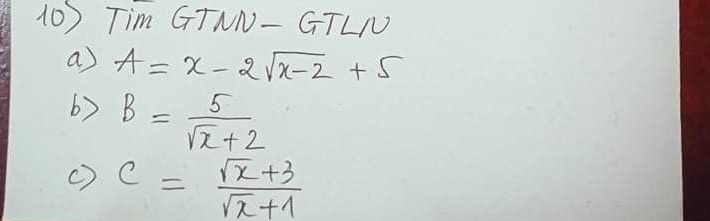 10) Tìm GTNN - GTLN
a) A = x - 2√(x-2) + 5
b) B = 5/(√x + 2)
c) C = (√x + 3)/(√x + 1)